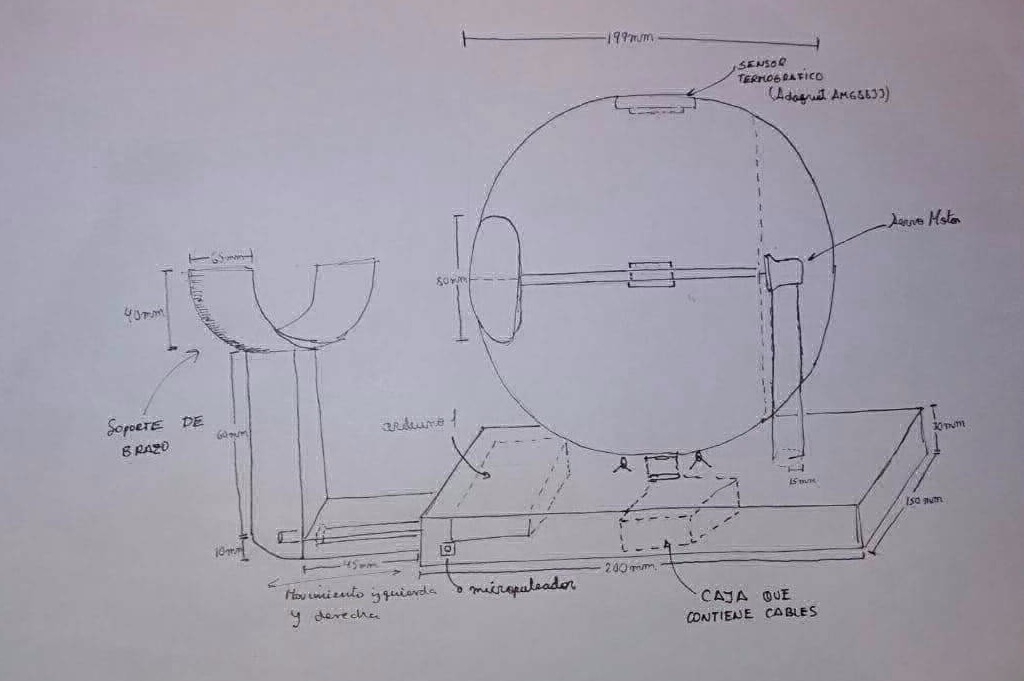 199mm
SENSOR
TERMOGRAFICO
(Adafruit AMG8833)
Servo Motor
65mm
80mm
40mm
SOPORTE DE
BRAZO
60mm
arduino 1
15mm
150mm
10mm
45mm
200mm
Movimiento izquierda
y derecha
micropulsador
CAJA QUE
CONTIENE CABLES